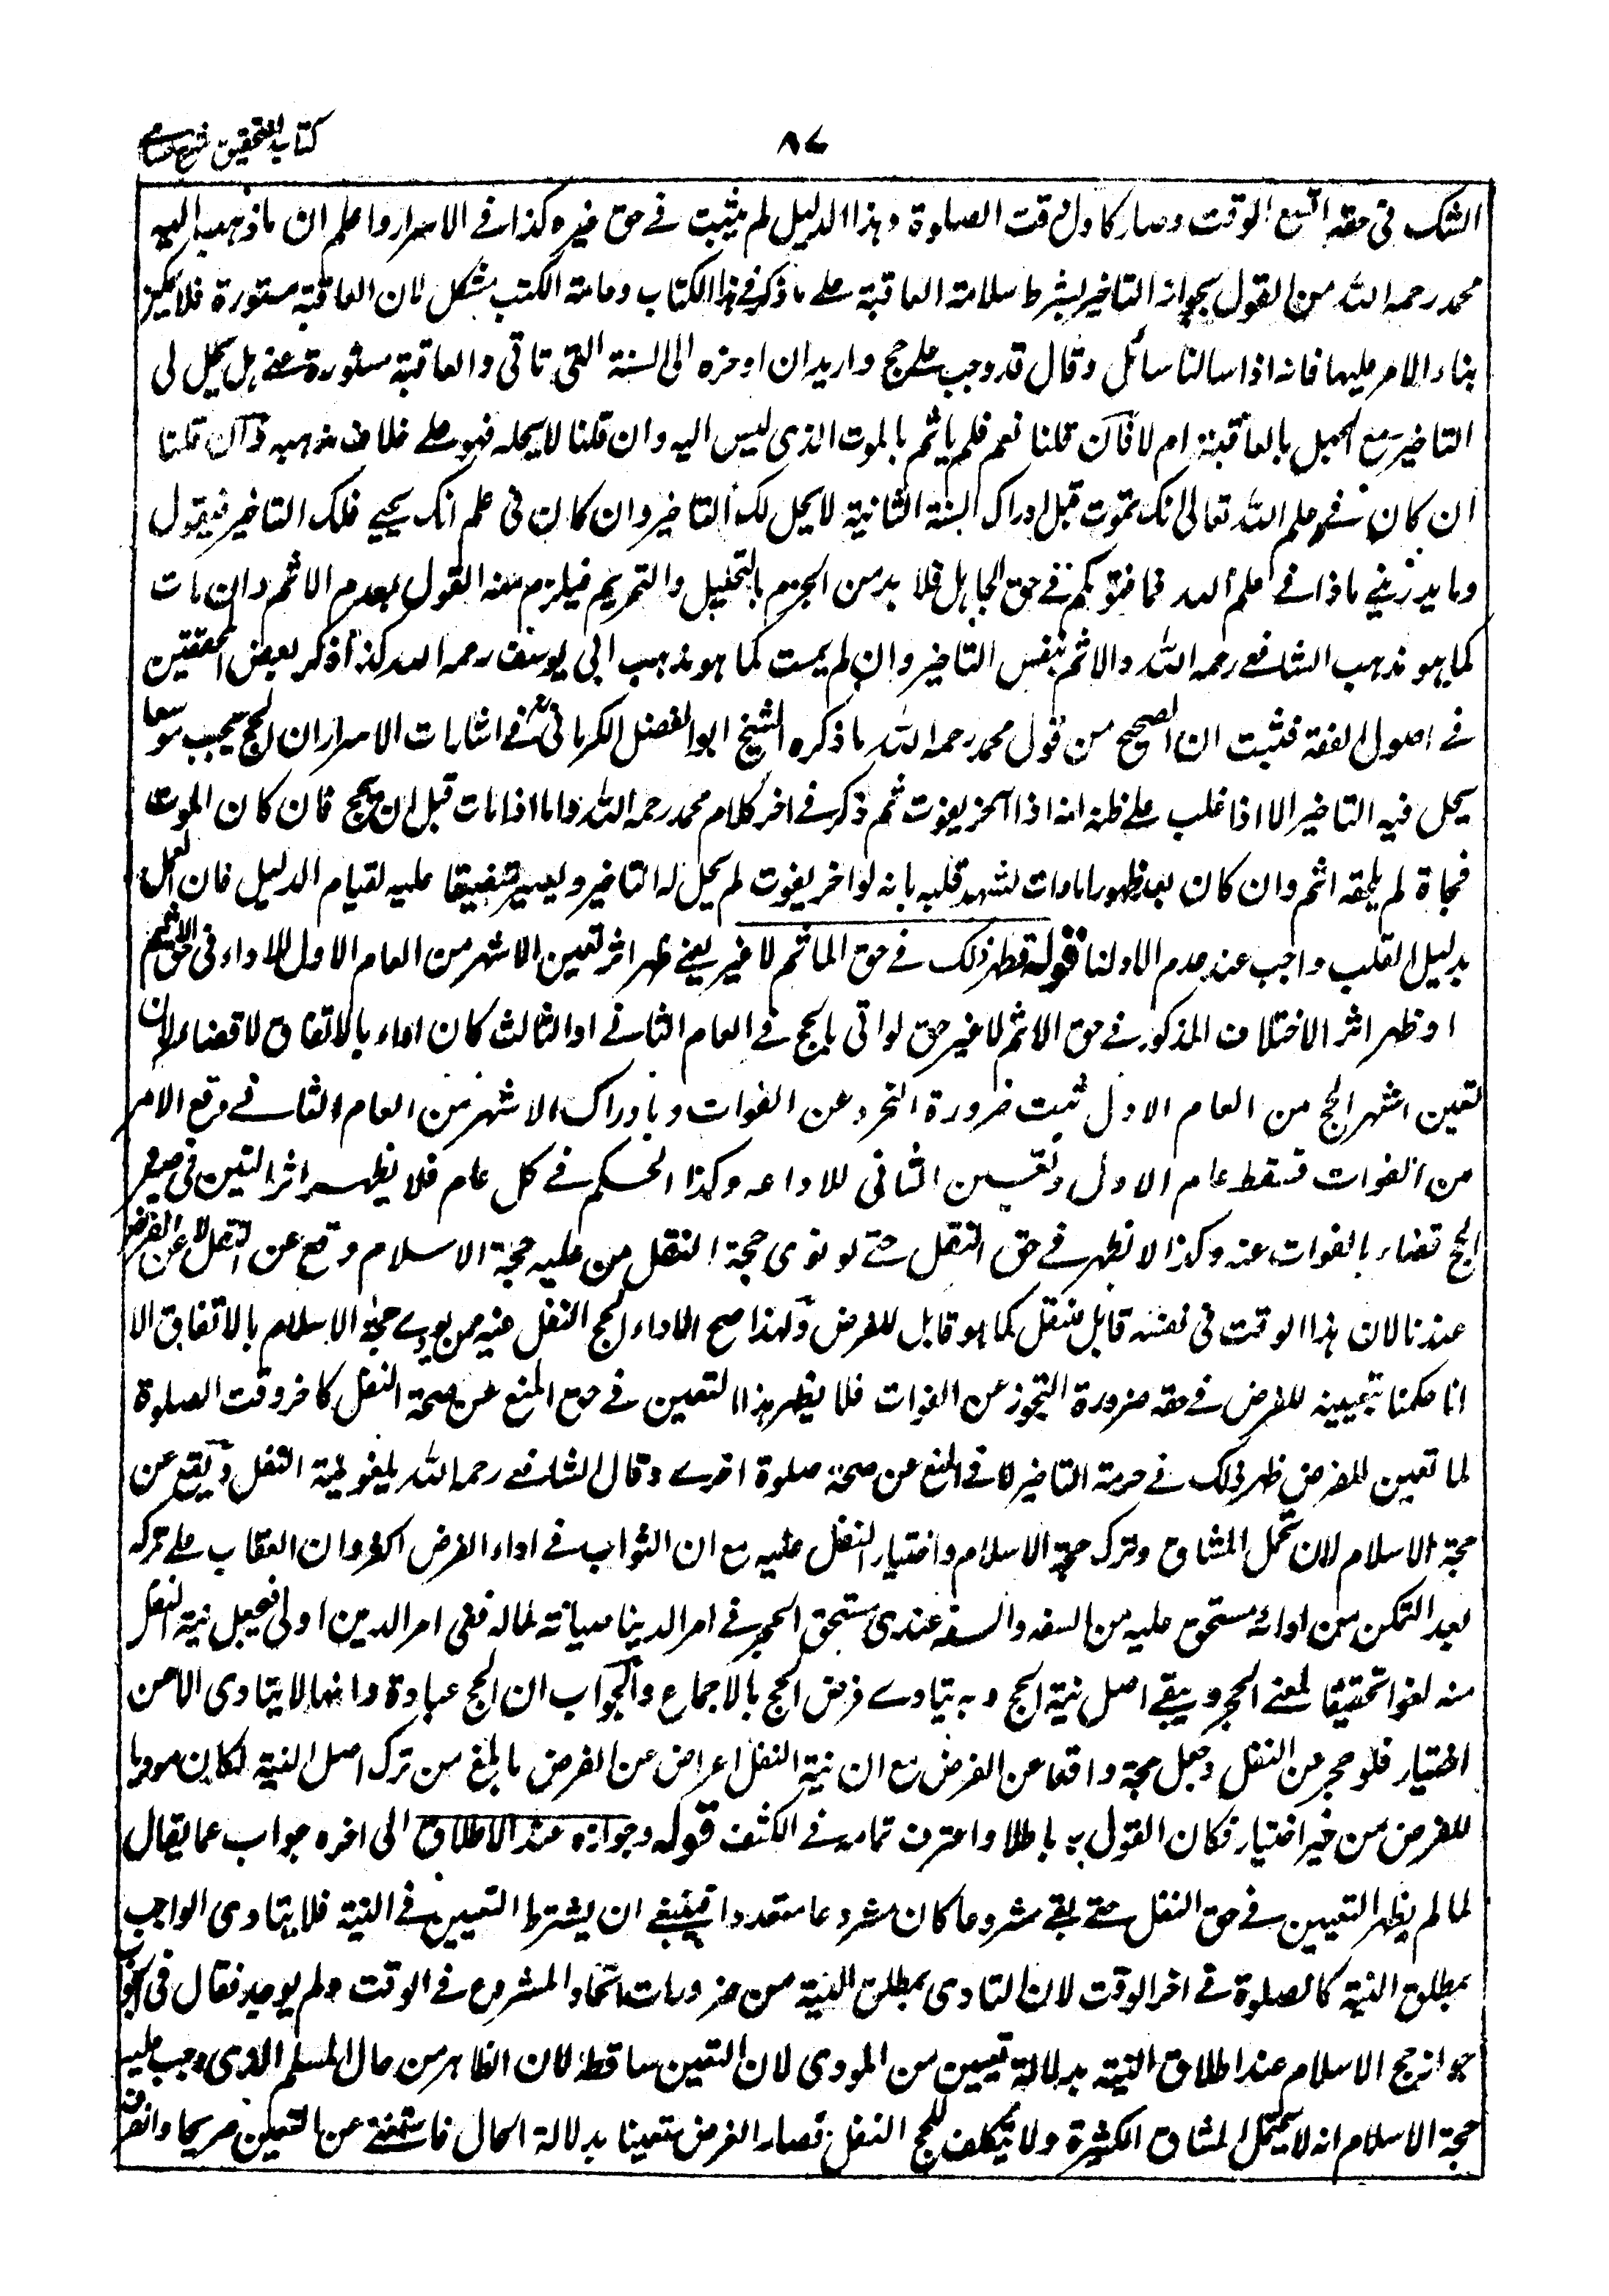 كتاب التحقيق شرح حسامي
٨٧
الشك في حقه اتسع الوقت وصار كاول وقت الصلوة وہذا الدليل لم يثبت في حق غيره كذا في الاسرار واعلم ان ما ذهب اليه
محمد رحمه الله من القول بجواز التاخير بشرط سلامة العاقبة على ما ذكر في هذا الكتاب وعامة الكتب مشكل لان العاقبة مستورة فلا يمكن
بناء الامر عليها فانه اذا سالنا سائل وقال قد وجب على حج واريد ان اوخره الى السنة التي تاتي والعاقبة مستورة عني هل يحل لى
التاخير مع الجهل بالعاقبة ام لا فان قلنا نعم فلم ياثم بالموت الذى ليس اليه وان قلنا لا يحل له فهو على خلاف مذهبه وان قلنا
ان كان في علم الله تعالى انك تموت قبل ادراك السنة الثانية لا يحل لك التاخير وان كان فى علمه انك تحيى فلك التاخير فيقول
وما يدريني ماذا في علم الله فما فتوىكم في حق الجاهل فلا بد من الجزم بالتحليل والتحريم فيلزم منه القول بعدم الاثم وان مات
كما هو مذهب الشافعي رحمه الله والاثم بنفس التاخير وان لم يمت كما هو مذهب ابى يوسف رحمه الله كذا ذكر بعض المحققين
في اصول الفقه فثبت ان الصحيح من قول محمد رحمه الله ما ذكره الشيخ ابو الفضل الكرماني في اشارات الاسرار ان الحج يجب موسعا
يحل فيه التاخير الا اذا غلب على ظنه انه اذا اخر يفوت ثم ذكر في اخر كلام محمد رحمه الله واما اذا مات قبل ان يحج فان كان الموت
فجاة لم يلحقه اثم وان كان بعد ظهور امارات يشهد قلبه بانه لو اخر يفوت لم يحل له التاخير ويصير مضيقا عليه لقيام الدليل فان العمل
بدليل القلب واجب عند عدم الادلة قوله فظهر ذلك في حق الماثم لا غير يعنى ظهر اثر تعين الاشهر من العام الاول للاداء فى حق الاثم
او ظهر اثر الاختلاف المذكور في حق الاثم لا غير حتى لو اتى بالحج في العام الثاني او الثالث كان اداء بالاتفاق لا قضاء لان
تعين اشهر الحج من العام الاول ثبت ضرورة التحرز عن الفوات وبادراك الاشهر من العام الثاني وقع الامن
من الفوات فسقط عام الاول وتعين الثانى للاداء وكذا الحكم في كل عام فلا يظهر اثر التعين فى صيرورة
الحج قضاء بالفوات عنه وكذا لا يظهر في حق النفل حتى لو نوى حجة النفل من عليه حجة الاسلام وقع عن النفل لا عن الفرض
عندنا لان هذا الوقت فى نفسه قابل للنفل كما هو قابل للفرض ولهذا صح اداء الحج النفل فيه ممن يودى حجة الاسلام بالاتفاق الا
انا حكمنا بتعينه للفرض في حقه ضرورة التحرز عن الفوات فلا يظهر هذا التعين في حق المنع عن صحة النفل كاخر وقت الصلوة
لما تعين للفرض ظهر ذلك في حرمة التاخير لا في المنع عن صحة صلوة اخرى وقال الشافعي رحمه الله يلغو نية النفل ويقع عن
حجة الاسلام لان تحمل المشاق وترك حجة الاسلام واختيار النفل عليه مع ان الثواب في اداء الفرض اكثر وان العقاب على تركه
بعد التمكن من ادائه مستحق عليه من السفه والسفه عندى مستحق الحجر في امر الدنيا صيانة لماله ففى امر الدين اولى فيجعل نية النفل
منه لغوا تحقيقا لمعنى الحجر ويبقى اصل نية الحج وبه يتادى فرض الحج بالاجماع والجواب ان الحج عبادة وانها لا يتادى الا عن
اختيار فلو حجر عن النفل وجعل حجه واقعا عن الفرض مع ان نية النفل اعراض عن الفرض ما بلغ من ترك اصل النية لكان موديا
للفرض من غير اختيار فكان القول به باطلا واعترف تمامه في الكشف قوله وجوازه عند الاطلاق الى اخره جواب عما يقال
لما لم يظهر التعيين في حق النفل حتى بقى مشروعا كان مشروعا متعددا فينبغى ان يشترط التعيين في النية فلا يتادى الواجب
بمطلق النية كالصلوة في اخر الوقت لان التادى بمطلق النية من ضرورات اتحاد المشروع في الوقت ولم يوجد فقال فى الجواب
جواز حج الاسلام عند اطلاق النية بدلالة تعيين من المودى لان التعين ساقط لان الظاهر من حال المسلم الذى وجب عليه
حجة الاسلام انه لا يتحمل المشاق الكثيرة ولا يتكلف للحج النفل فصار الفرض متعينا بدلالة الحال فاستغنى عن التعيين صريحا وانصرف